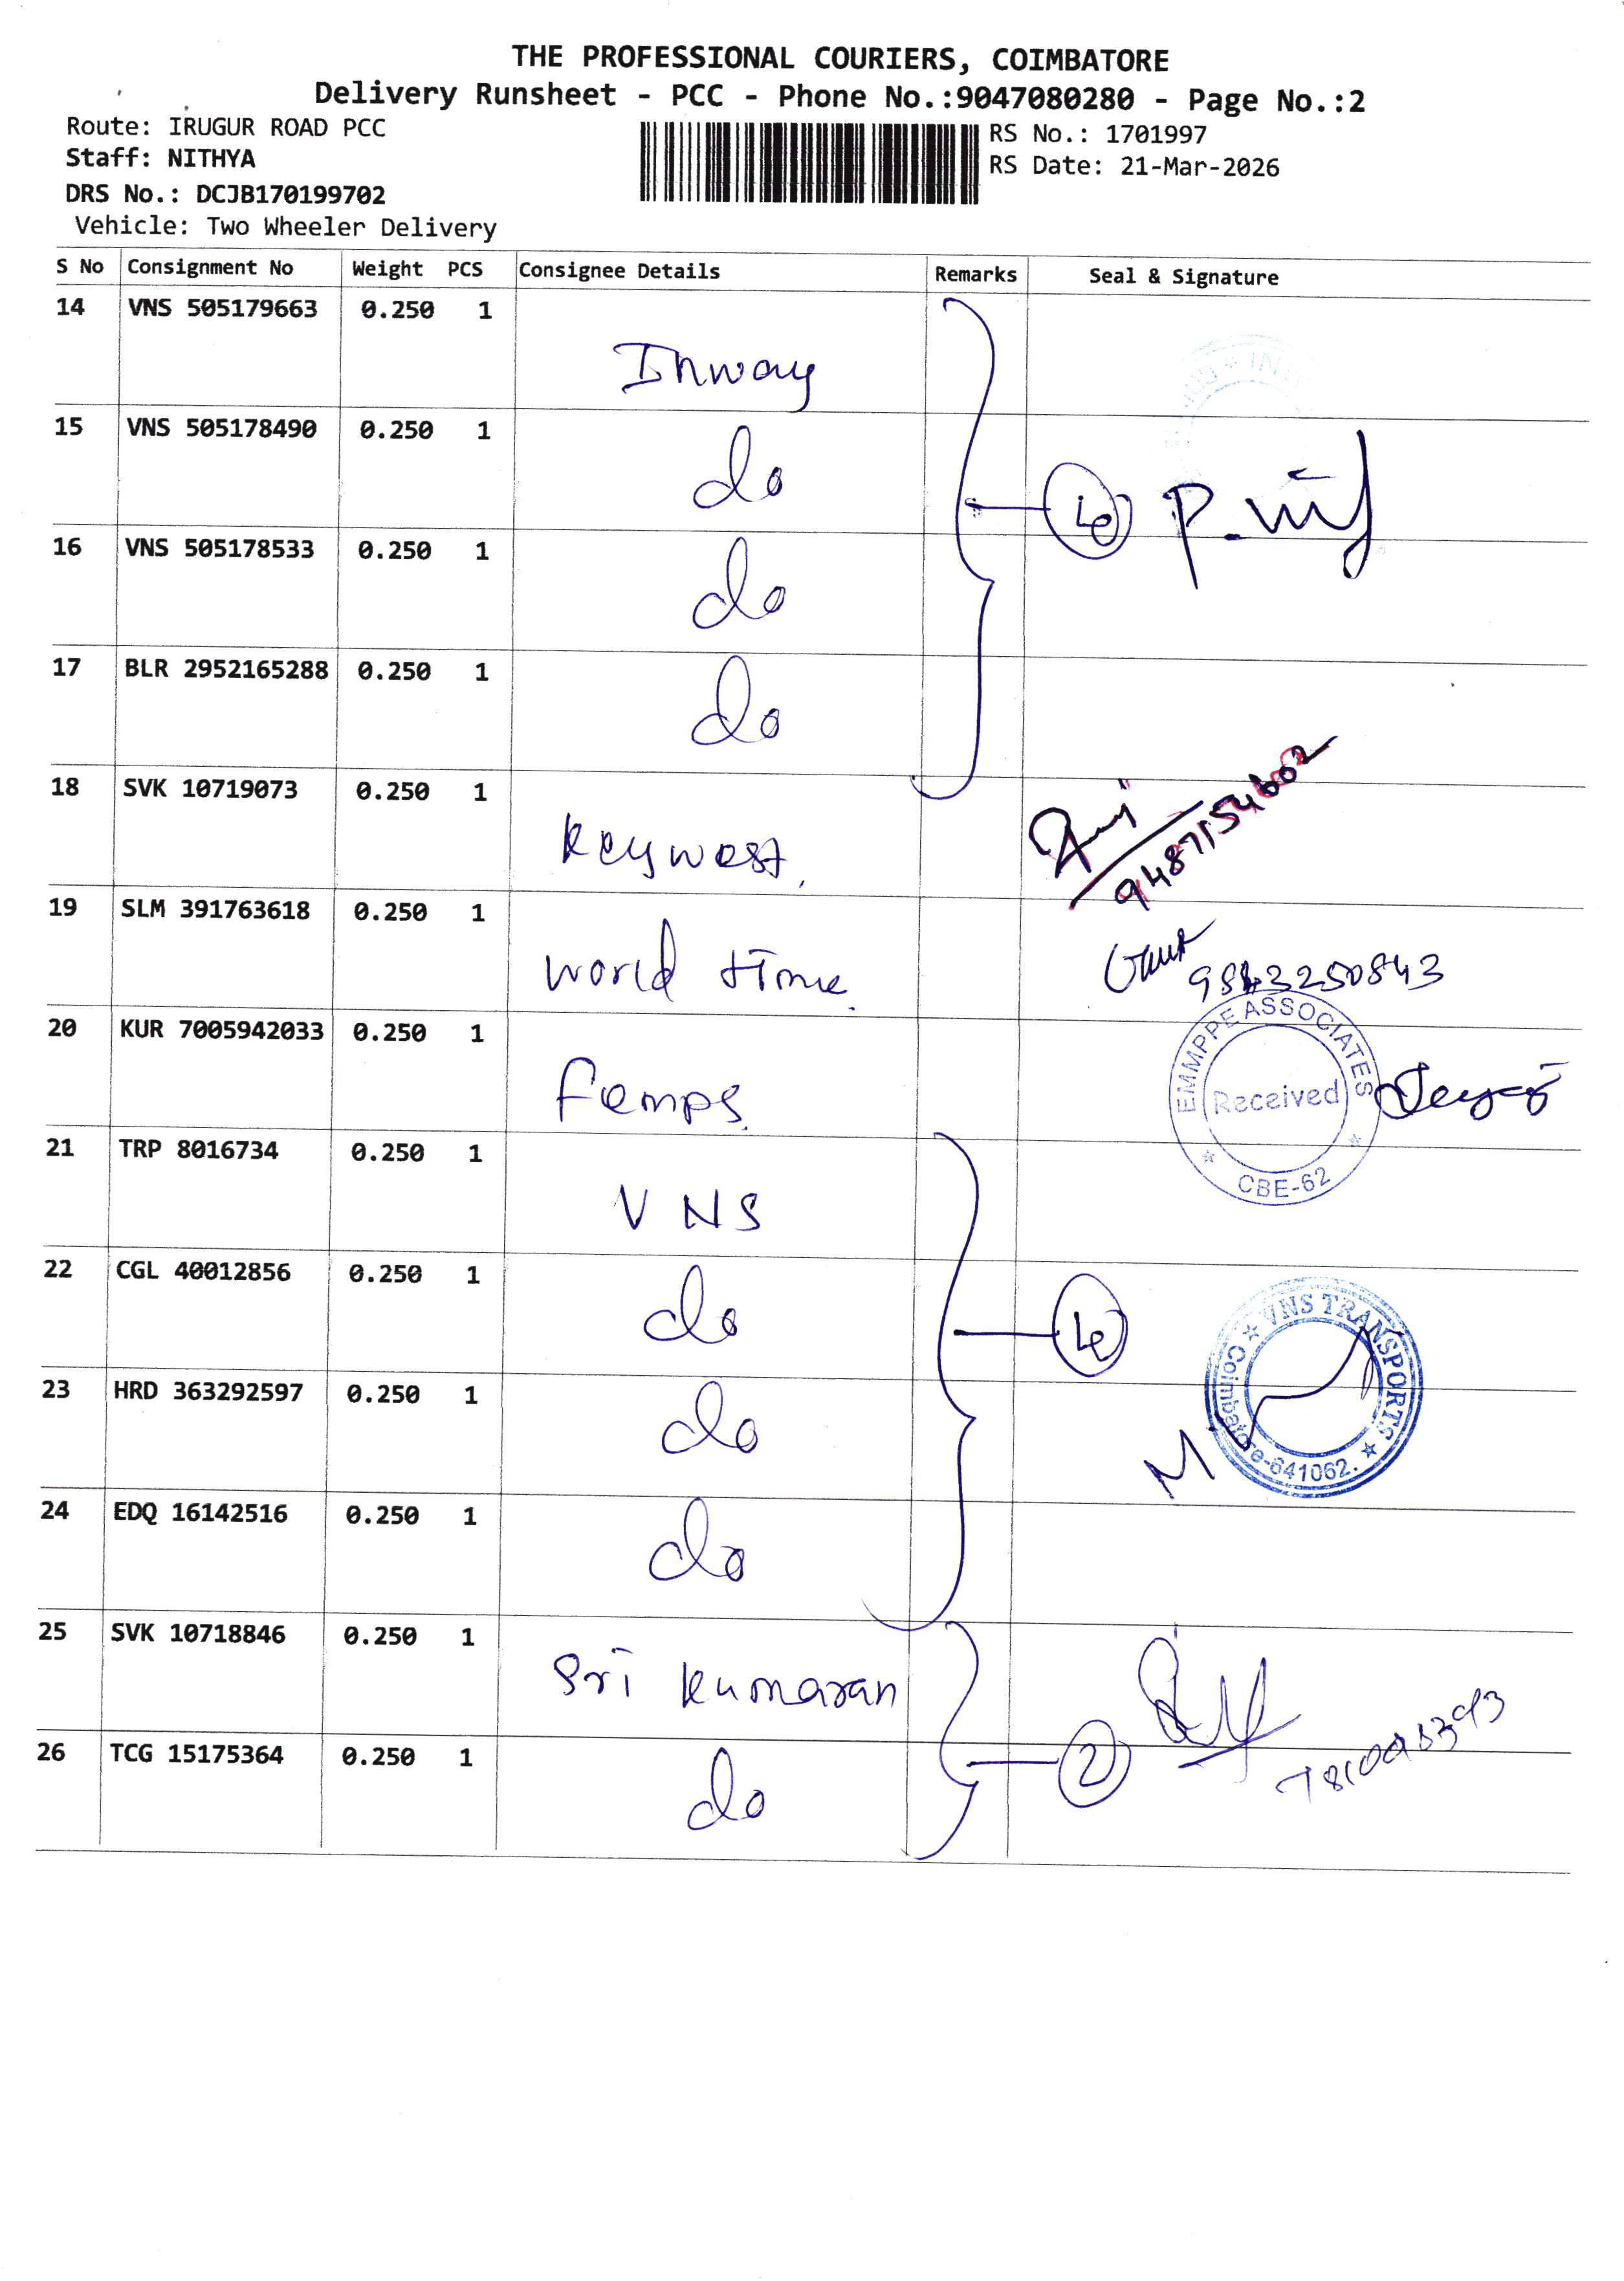 THE PROFESSIONAL COURIERS, COIMBATORE
Delivery Runsheet - PCC - Phone No.:9047080280 - Page No.:2
Route: IRUGUR ROAD PCC
Staff: NITHYA
DRS No.: DCJB170199702
Vehicle: Two Wheeler Delivery
RS No.: 1701997
RS Date: 21-Mar-2026
S No Consignment No Weight PCS Consignee Details Remarks Seal & Signature
14 VNS 505179663 0.250 1 Inway
15 VNS 505178490 0.250 1 do
16 VNS 505178533 0.250 1 do
17 BLR 2952165288 0.250 1 do
18 SVK 10719073 0.250 1 Keywest. 9487154602
19 SLM 391763618 0.250 1 World time. 9843250843
20 KUR 7005942033 0.250 1 Femps.
EMMPPE ASSOCIATES
Received
CBE-62
21 TRP 8016734 0.250 1 VNS
22 CGL 40012856 0.250 1 do
23 HRD 363292597 0.250 1 do
VNS TRANSPORTS
Coimbatore-641062.
24 EDQ 16142516 0.250 1 do
25 SVK 10718846 0.250 1 Sri Kumaran
26 TCG 15175364 0.250 1 do 2